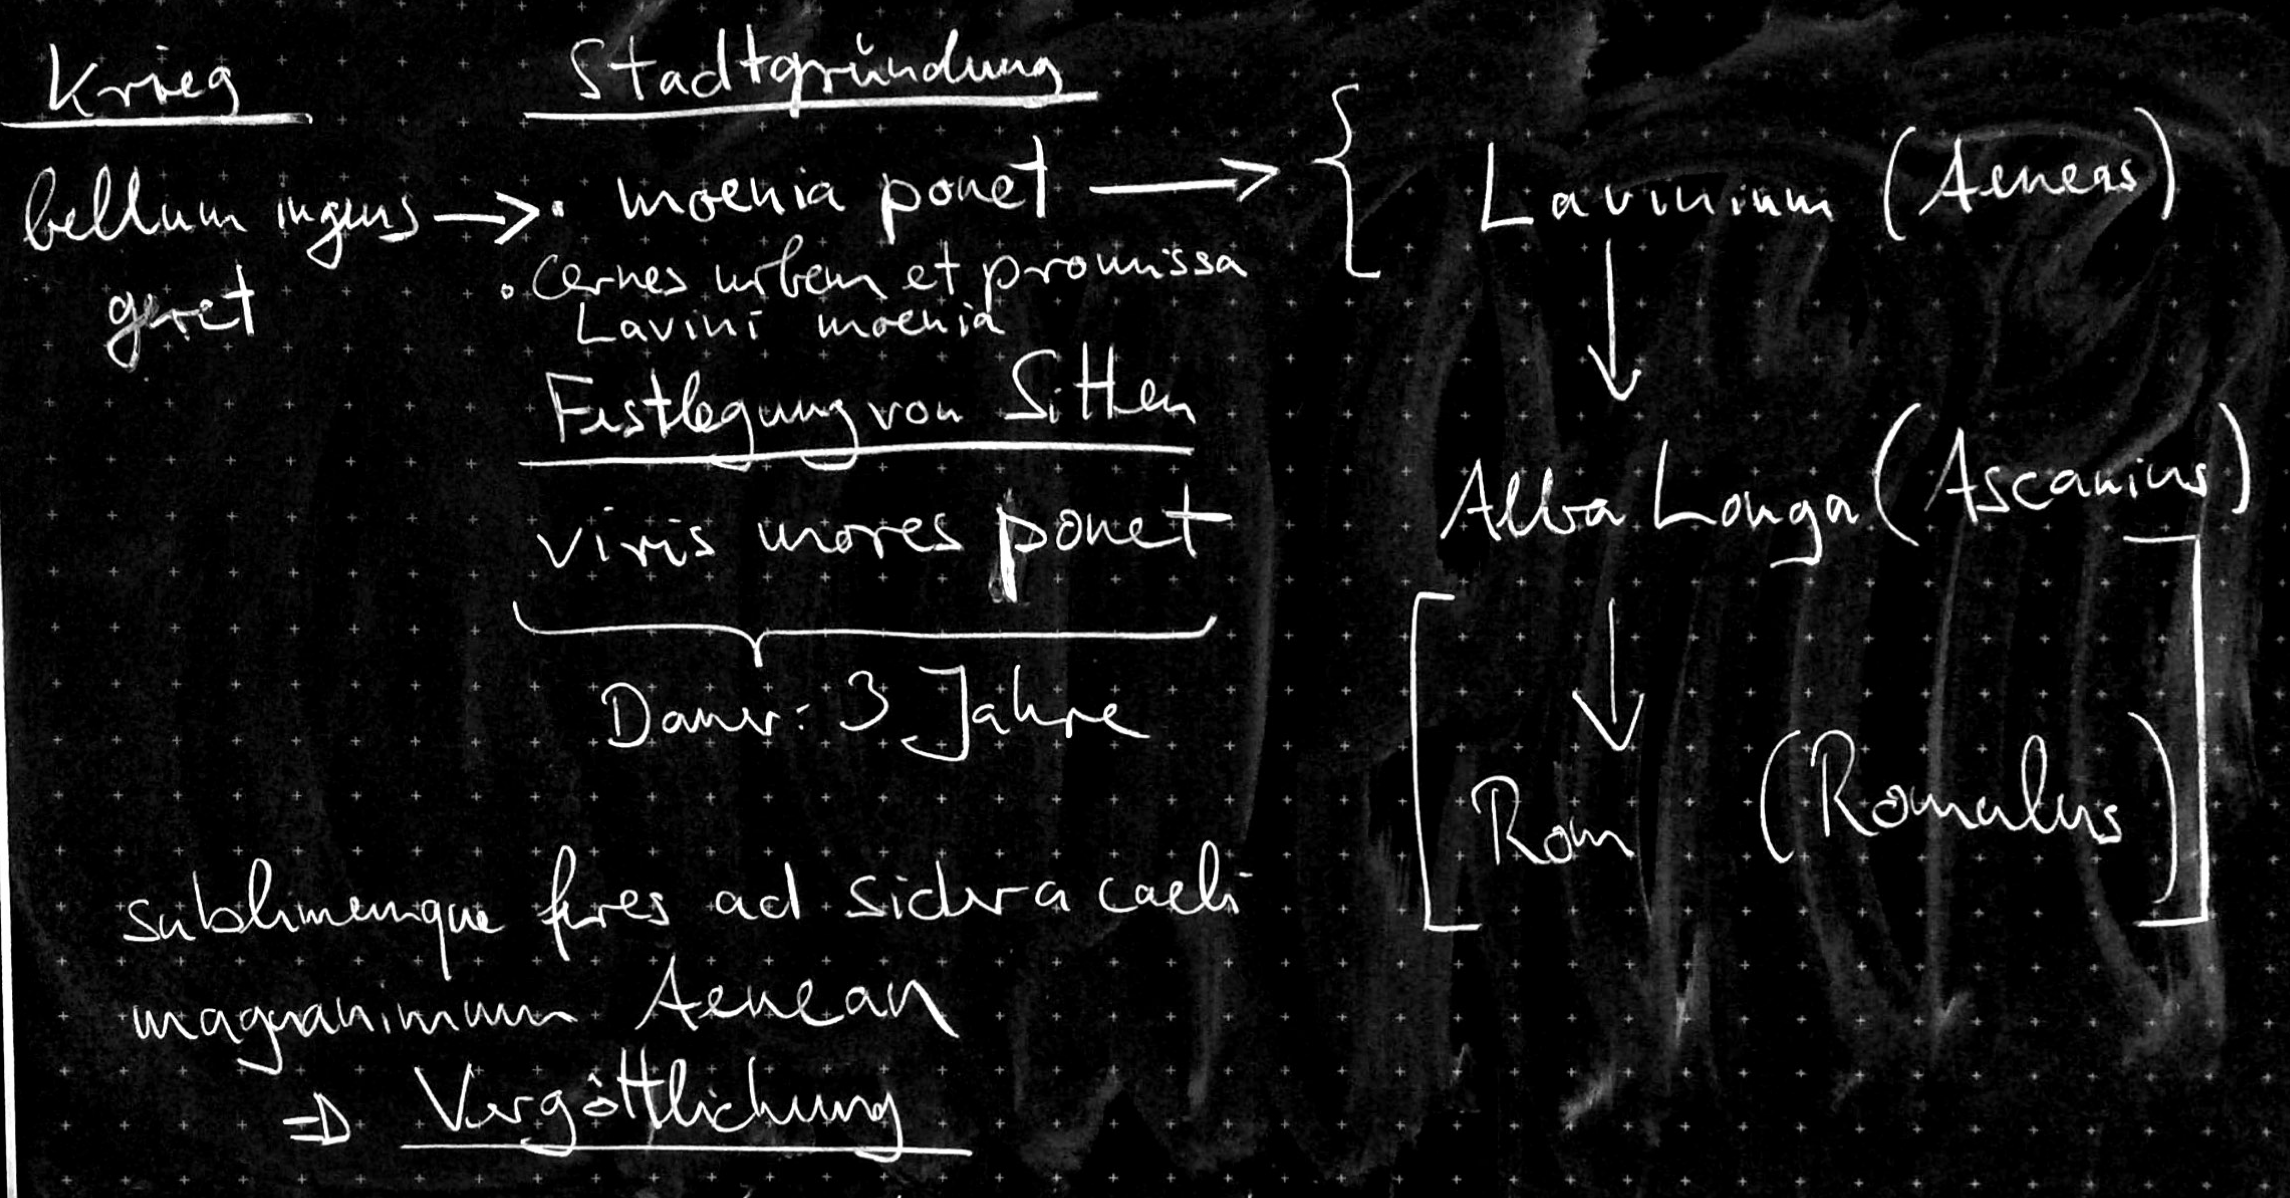 Krieg
Stadtgründung
bellum ingens → • moenia ponet → { Lavinium (Aeneas)
geret
• Cernes urbem et promissa
Lavini moenia
↓
Festlegung von Sitten
Alba Longa (Ascanius)
viris mores ponet
↓
Dauer: 3 Jahre
[Rom (Romulus)]
sublimemque feres ad sidera caeli
magnanimum Aenean
⇒ Vergöttlichung